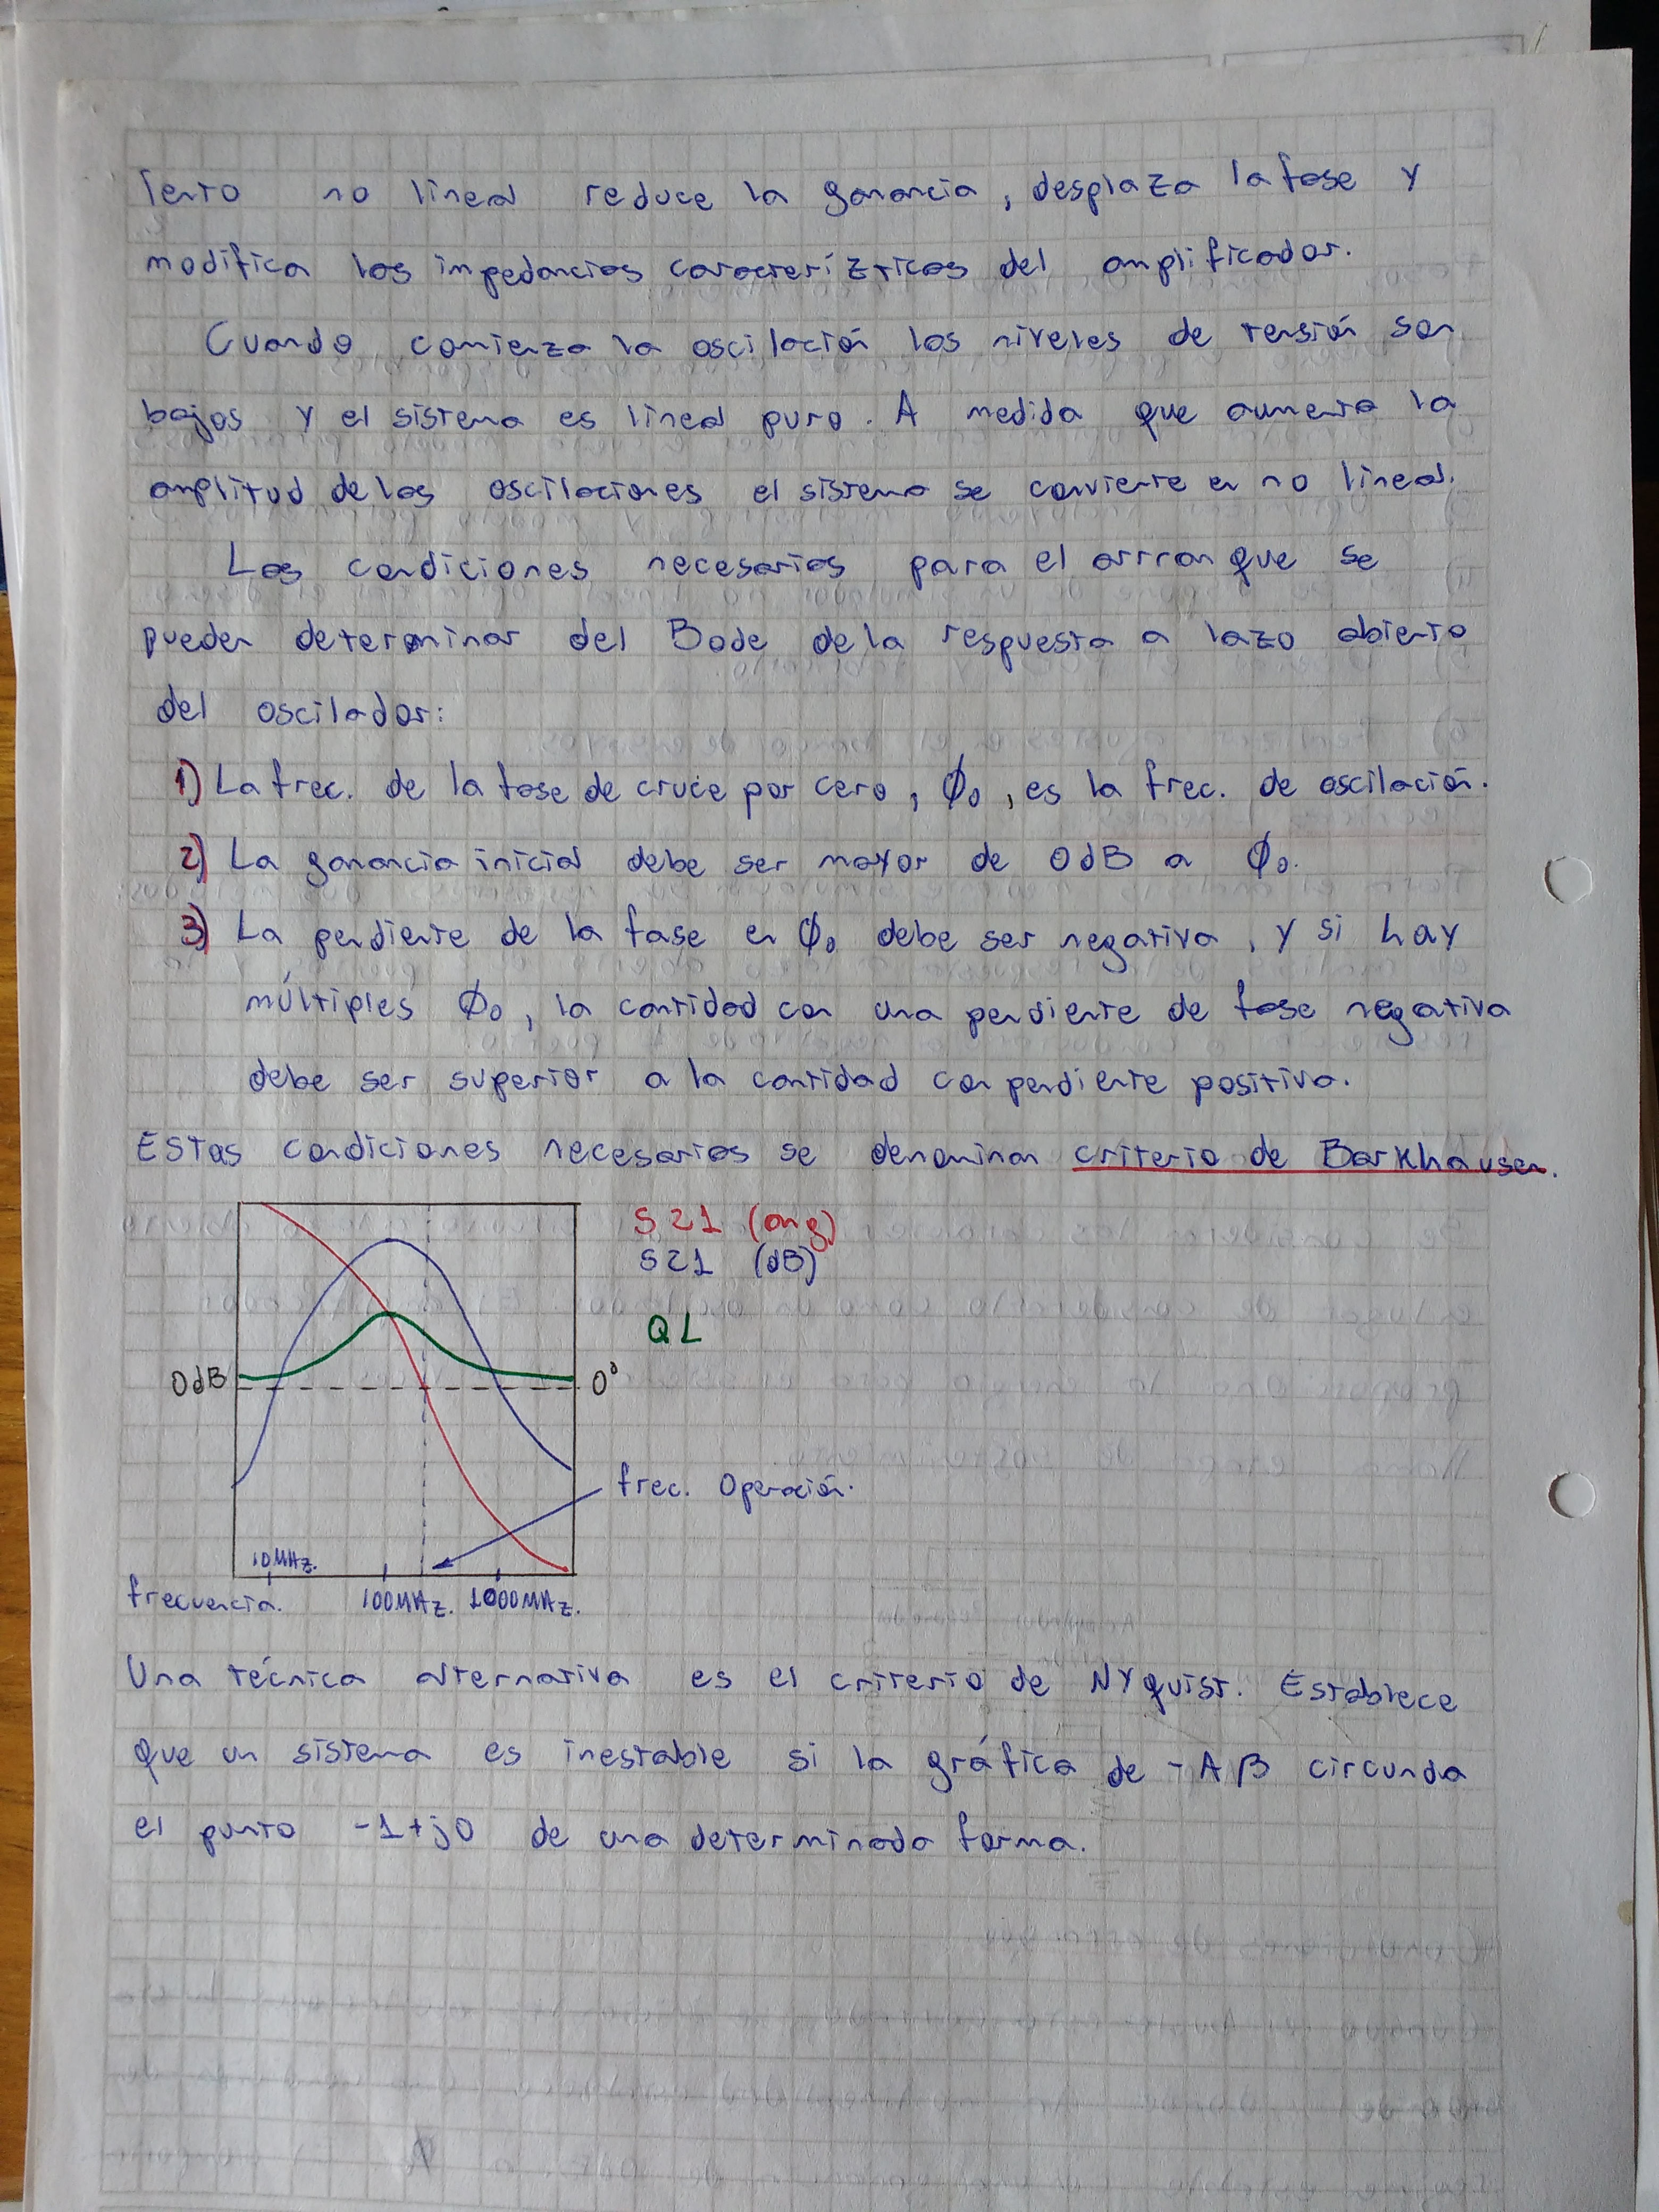 iento no lineal reduce la ganancia, desplaza la fase y
modifica las impedancias caracterízticas del amplificador.
Cuando comienza la oscilación los niveles de tensión son
bajos y el sistema es lineal puro. A medida que aumenta la
amplitud de las oscilaciones el sistema se convierte en no lineal.
Las condiciones necesarias para el arranque se
pueden determinar del Bode de la respuesta a lazo abierto
del oscilador:
1) La frec. de la fase de cruce por cero, ϕ₀, es la frec. de oscilación.
2) La ganancia inicial debe ser mayor de 0dB a ϕ₀.
3) La pendiente de la fase en ϕ₀ debe ser negativa, y si hay
múltiples ϕ₀, la cantidad con una pendiente de fase negativa
debe ser superior a la cantidad con pendiente positiva.
Estas condiciones necesarias se denominan criterio de Barkhausen.
S21 (ang)
S21 (dB)
QL
0dB
0°
frec. Operación.
10MHz.
frecuencia. 100MHz. 1000MHz.
Una técnica alternativa es el criterio de Nyquist. Establece
que un sistema es inestable si la gráfica de -Aβ circunda
el punto -1+j0 de una determinada forma.